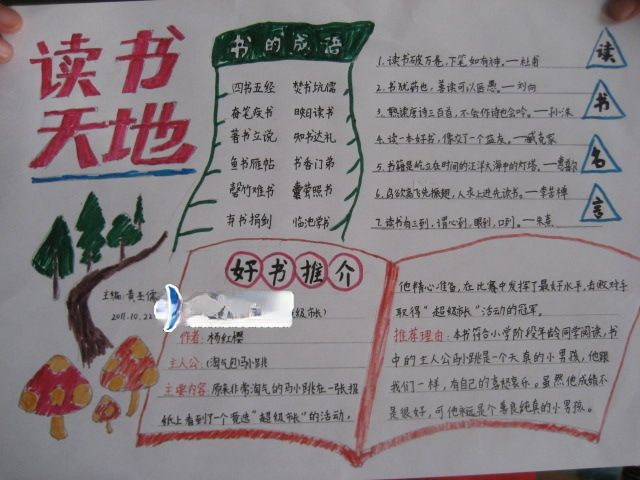 读书
天地
书的成语
四书五经 焚书坑儒
奋笔疾书
著书立说 知书达礼
鱼书雁帖 书香门弟
罄竹难书 囊萤照书
弃书捐剑 临池学书
1.读书破万卷,下笔如有神。—杜甫
2.书犹药也,善读可以医愚。—刘向
3.熟读唐诗三百首,不会作诗也会吟。—孙洙
4.读一本好书,像交了一个益友。—臧克家
5.书籍是屹立在时间的汪洋大海中的灯塔。
6.鸟欲高飞先振翅,人求上进先读书。—李苦禅
7.读书有三到,谓心到,眼到,口到。—朱熹
读
书
名
言
主编:黄
2011.10.22
好书推介
级市长)
作者:杨红樱
主人公:(淘气包)马小跳
主要内容:原来非常淘气的马小跳在一张报
纸上看到了一个竞选“超级市长”的活动,
他精心准备,在比赛中发挥了最好水平,击败对手
取得“超级市长”活动的冠军。
推荐理由:本书符合小学阶段年龄同学阅读,书
中的主人公马小跳是一个天真的小男孩,他跟
我们一样,有自己的喜怒哀乐。虽然他成绩不
是很好,可他永远是个善良纯真的小男孩。